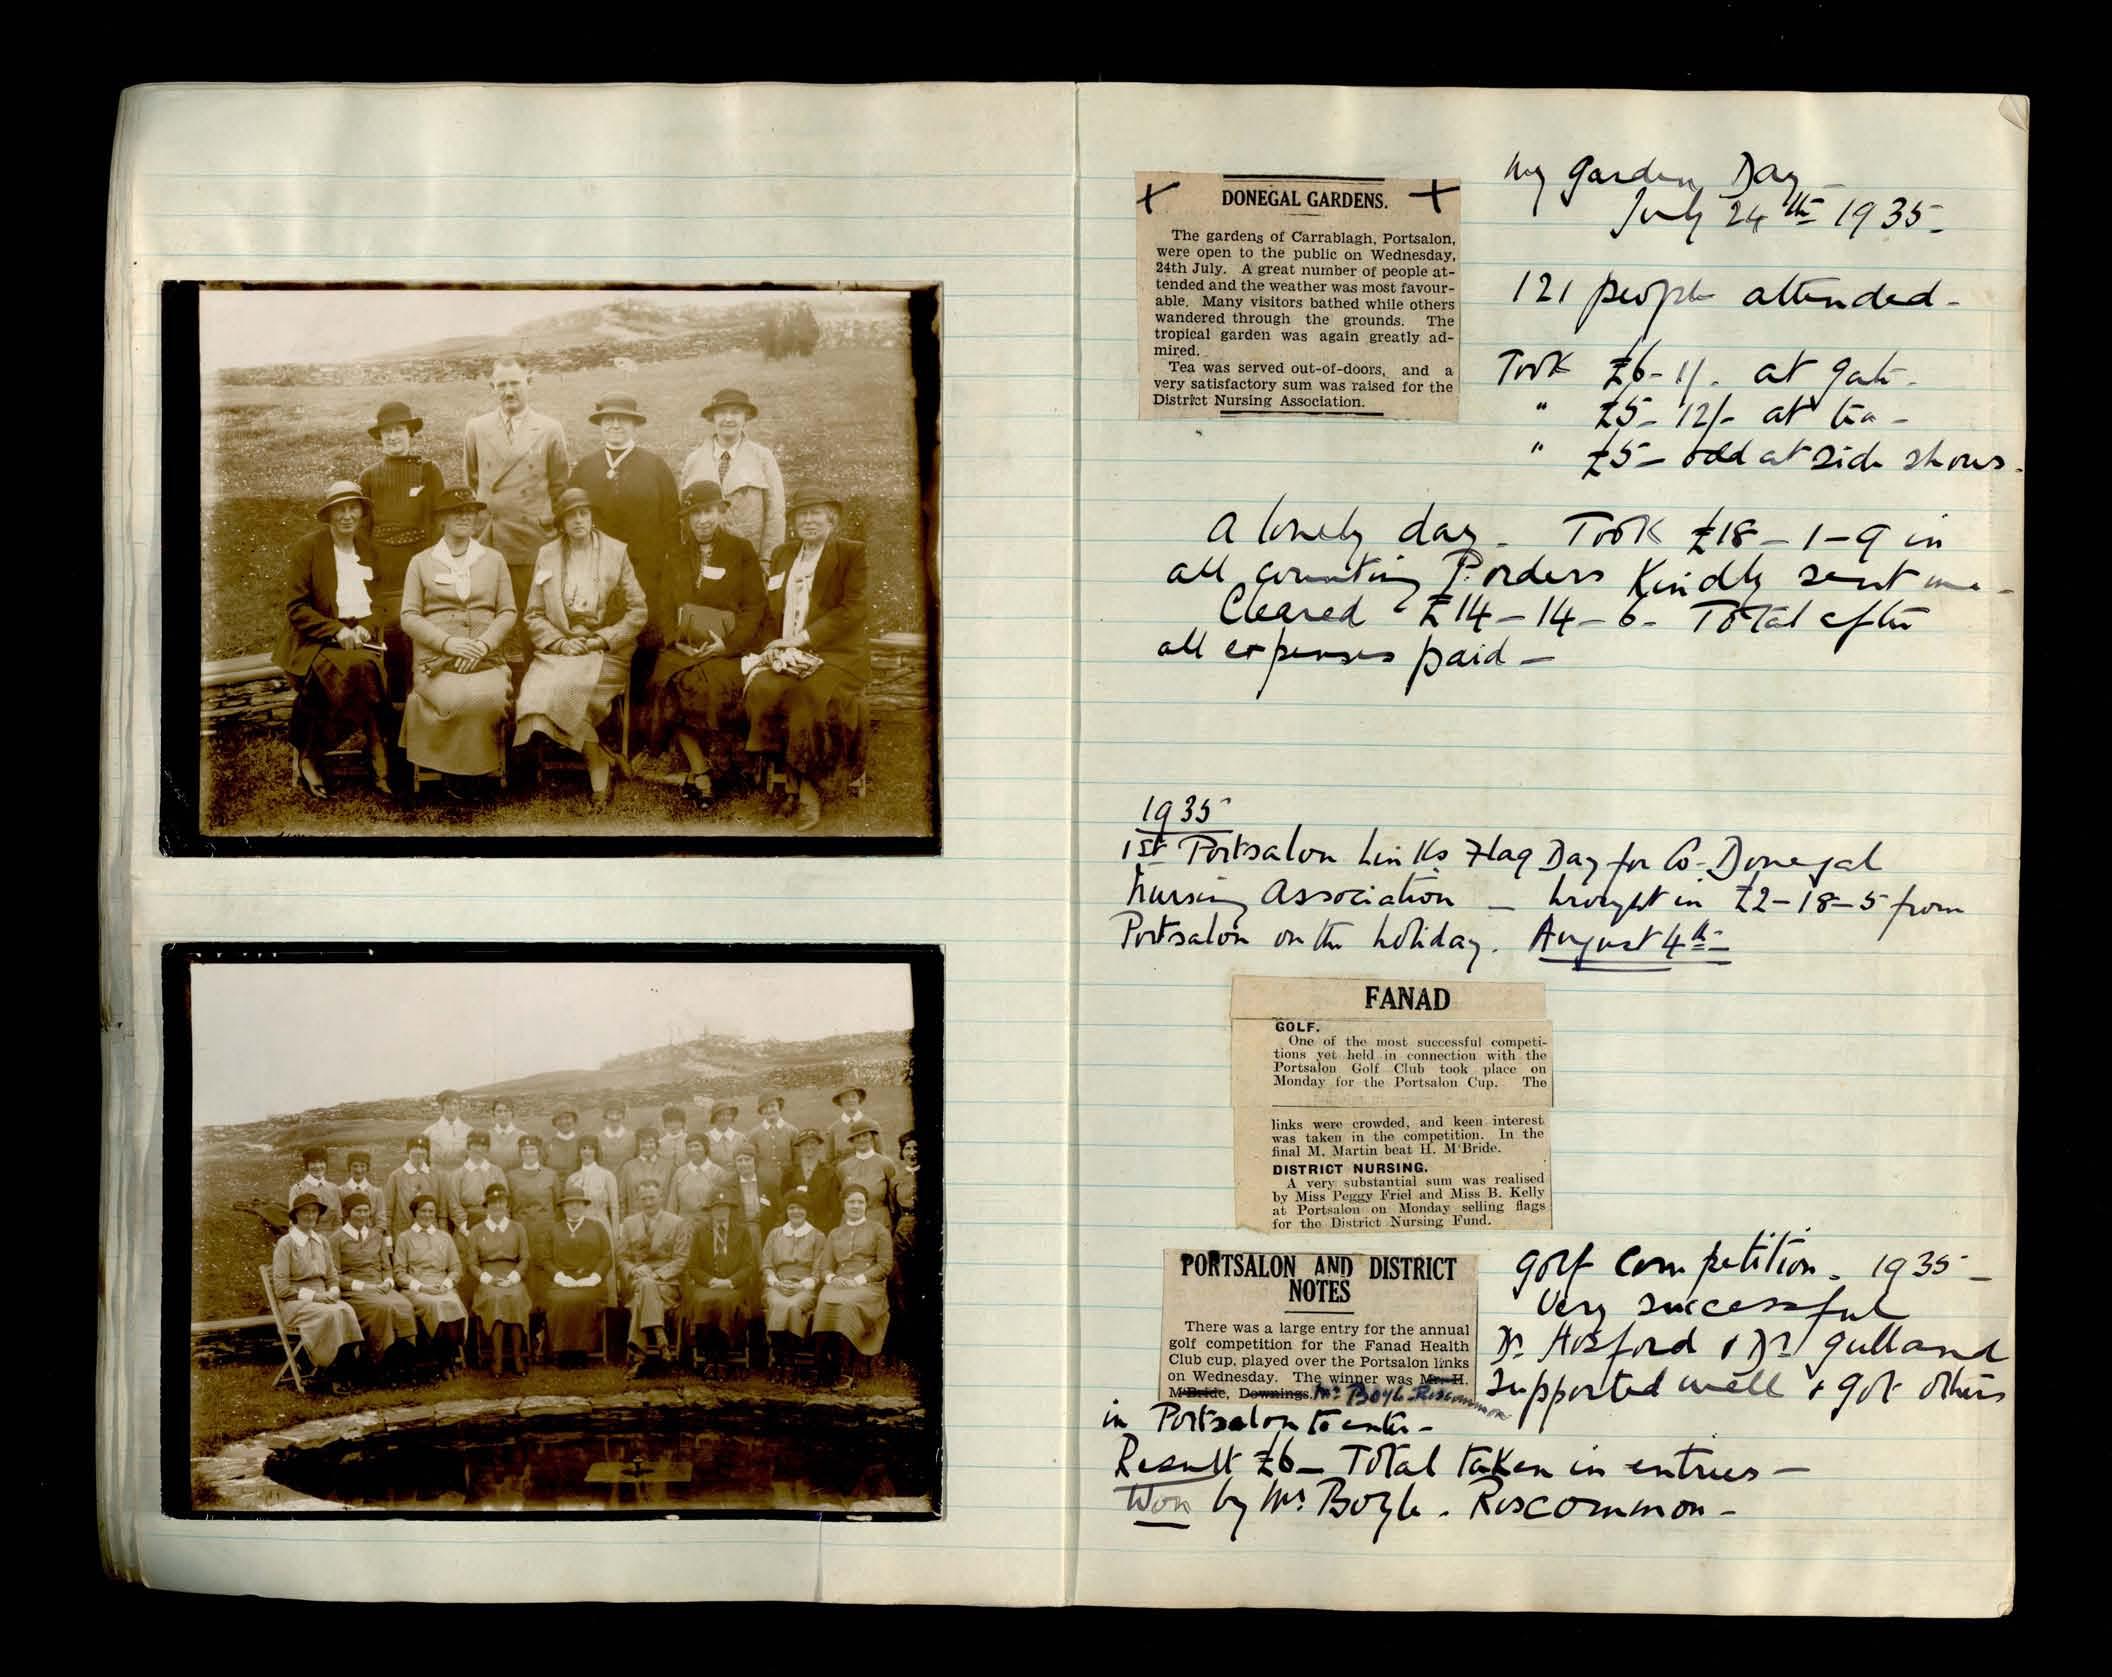 DONEGAL GARDENS.
The gardens of Carrablagh, Portsalon,
were open to the public on Wednesday,
24th July. A great number of people at-
tended and the weather was most favour-
able. Many visitors bathed while others
wandered through the grounds. The
tropical garden was again greatly ad-
mired.
Tea was served out-of-doors, and a
very satisfactory sum was raised for the
District Nursing Association.
My Garden Day
July 24th 1935-
121 people attended-
Took £6-1/- at gate-
" £5-12/- at tea-
" £5- odd at side shows-
A lovely day- Took £18-1-9 in
all counting P.orders Kindly sent me-
Cleared £14-14-6- Total after
all expenses paid-
1935
1st Portsalon Links Flag Day for Co-Donegal
Nursing Association - brought in £2-18-5 from
Portsalon on the holiday. August 4th-
FANAD
GOLF.
One of the most successful competi-
tions yet held in connection with the
Portsalon Golf Club took place on
Monday for the Portsalon Cup. The
links were crowded, and keen interest
was taken in the competition. In the
final M. Martin beat H. M'Bride.
DISTRICT NURSING.
A very substantial sum was realised
by Miss Peggy Friel and Miss B. Kelly
at Portsalon on Monday selling flags
for the District Nursing Fund.
PORTSALON AND DISTRICT
NOTES
There was a large entry for the annual
golf competition for the Fanad Health
Club cup, played over the Portsalon links
on Wednesday. The winner was Mr. H.
M'Bride, Downings. Mr Boyle-Roscommon
Golf Competition. 1935-
Very successful
Dr. Hosford & Dr. Gulland
supported well & got others
in Portsalon to enter-
Result £6- Total taken in entries-
Won by Mr Boyle. Roscommon-